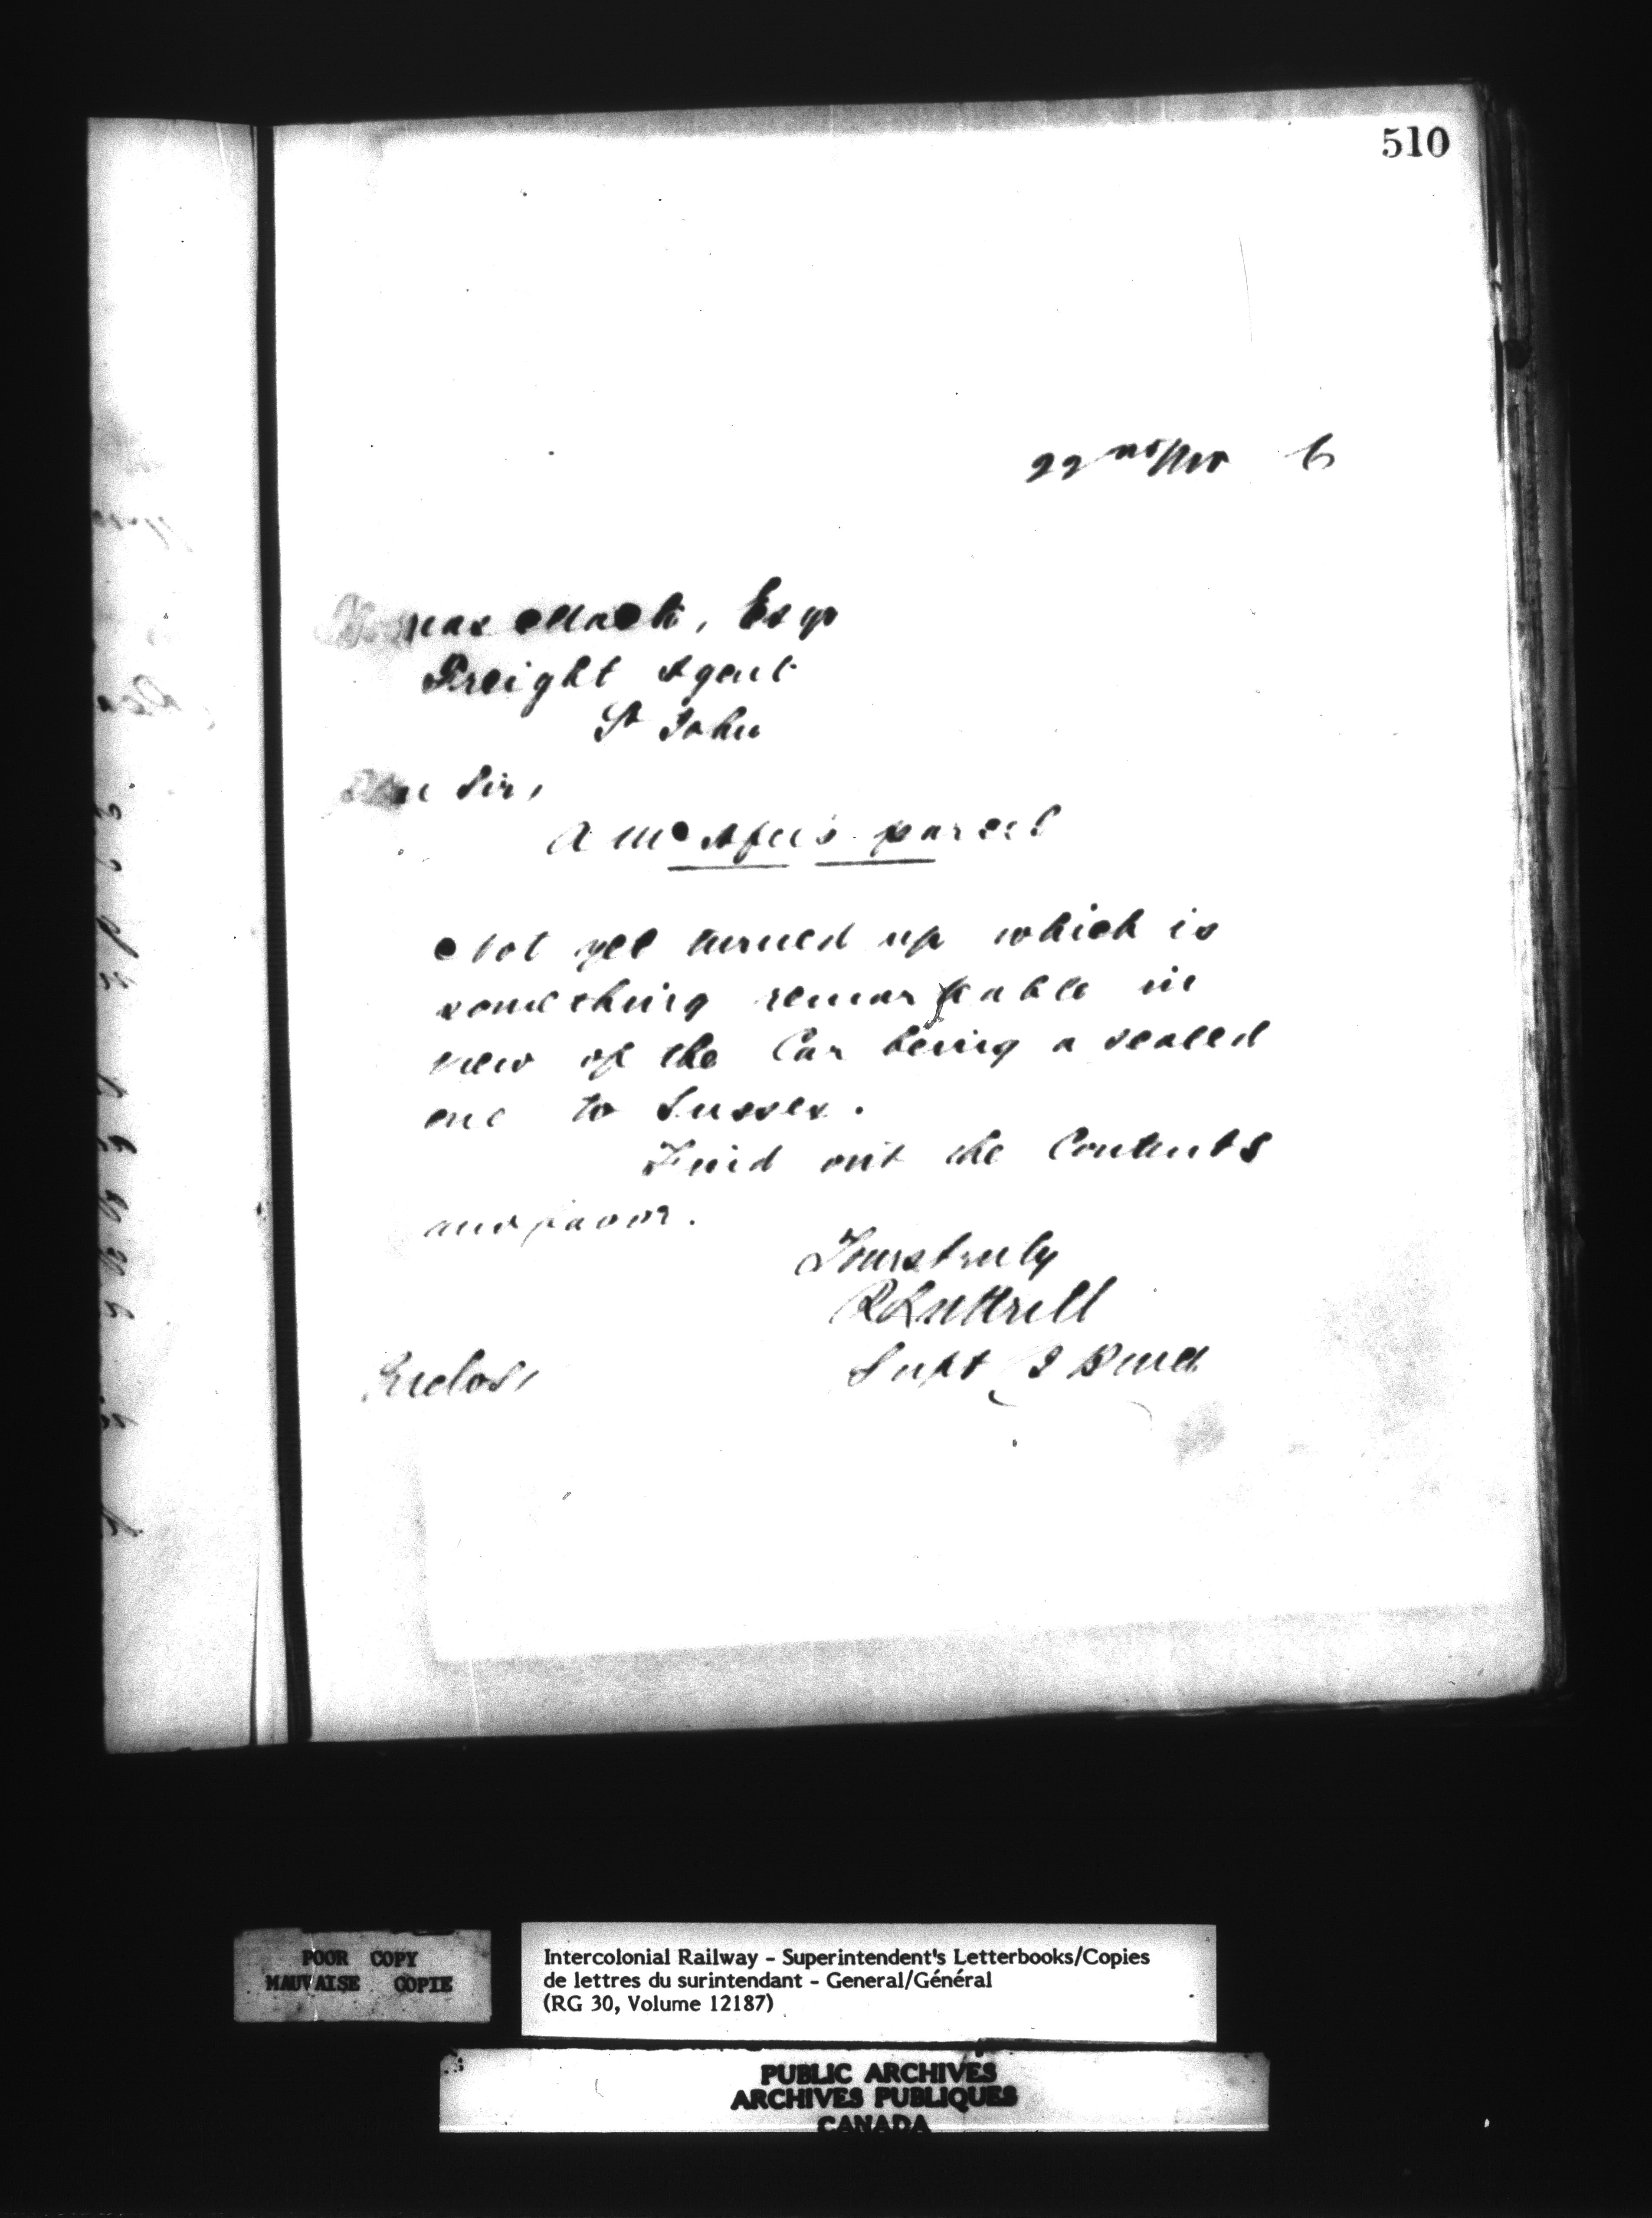 510
22nd Nov 6
Thomas Mack, Esqr
Freight Agent
St John
Dear Sir,
A McAfee's parcel
Not yet turned up which is
something remarkable in
view of the Car being a sealed
one to Sussex.
Find out the Contents
and favor.
Yours truly
R Luttrell
Supt
Enclos,
POOR COPY
MAUVAISE COPIE
Intercolonial Railway - Superintendent's Letterbooks/Copies
de lettres du surintendant - General/Général
(RG 30, Volume 12187)
PUBLIC ARCHIVES
ARCHIVES PUBLIQUES
CANADA